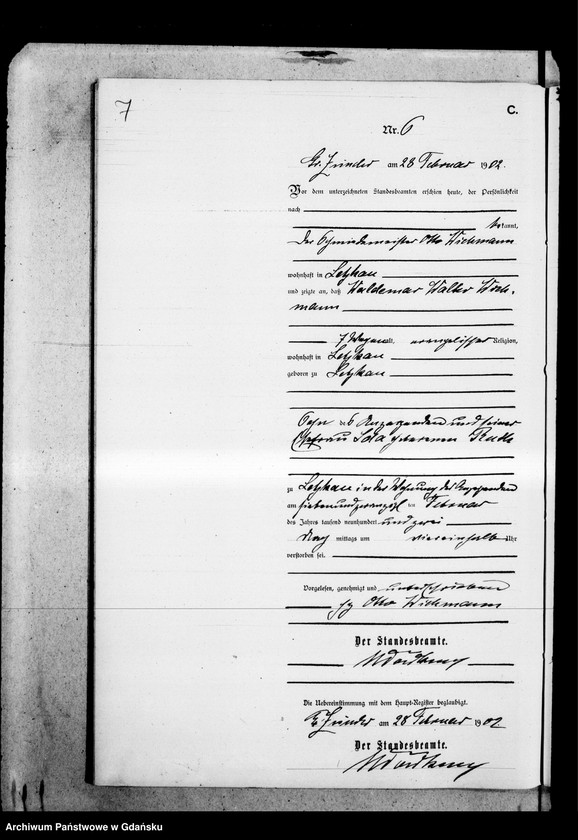 7
C.
Nr. 6
Gr. Zünder am 28 Februar 1902.
Vor dem unterzeichneten Standesbeamten erschien heute, der Persönlichkeit
nach
bekannt,
Der Schmiedemeister Otto Wichmann
wohnhaft in Letzkau
und zeigte an, daß Waldemar Walter Wich-
mann
7 alt, evangelischer Religion,
wohnhaft in Letzkau
geboren zu Letzkau
Sohn des Anzeigenden und seiner
Ehefrau geborenen
zu Letzkau in der Wohnung des Anzeigenden
am siebenundzwanzigsten Februar
des Jahres tausend neunhundert und zwei
Nach mittags um Uhr
verstorben sei.
Vorgelesen, genehmigt und unterschrieben
gz Otto Wichmann
Der Standesbeamte.
Die Uebereinstimmung mit dem Haupt-Register beglaubigt.
Gr. Zünder am 28 Februar 1902
Der Standesbeamte.
Archiwum Państwowe w Gdańsku